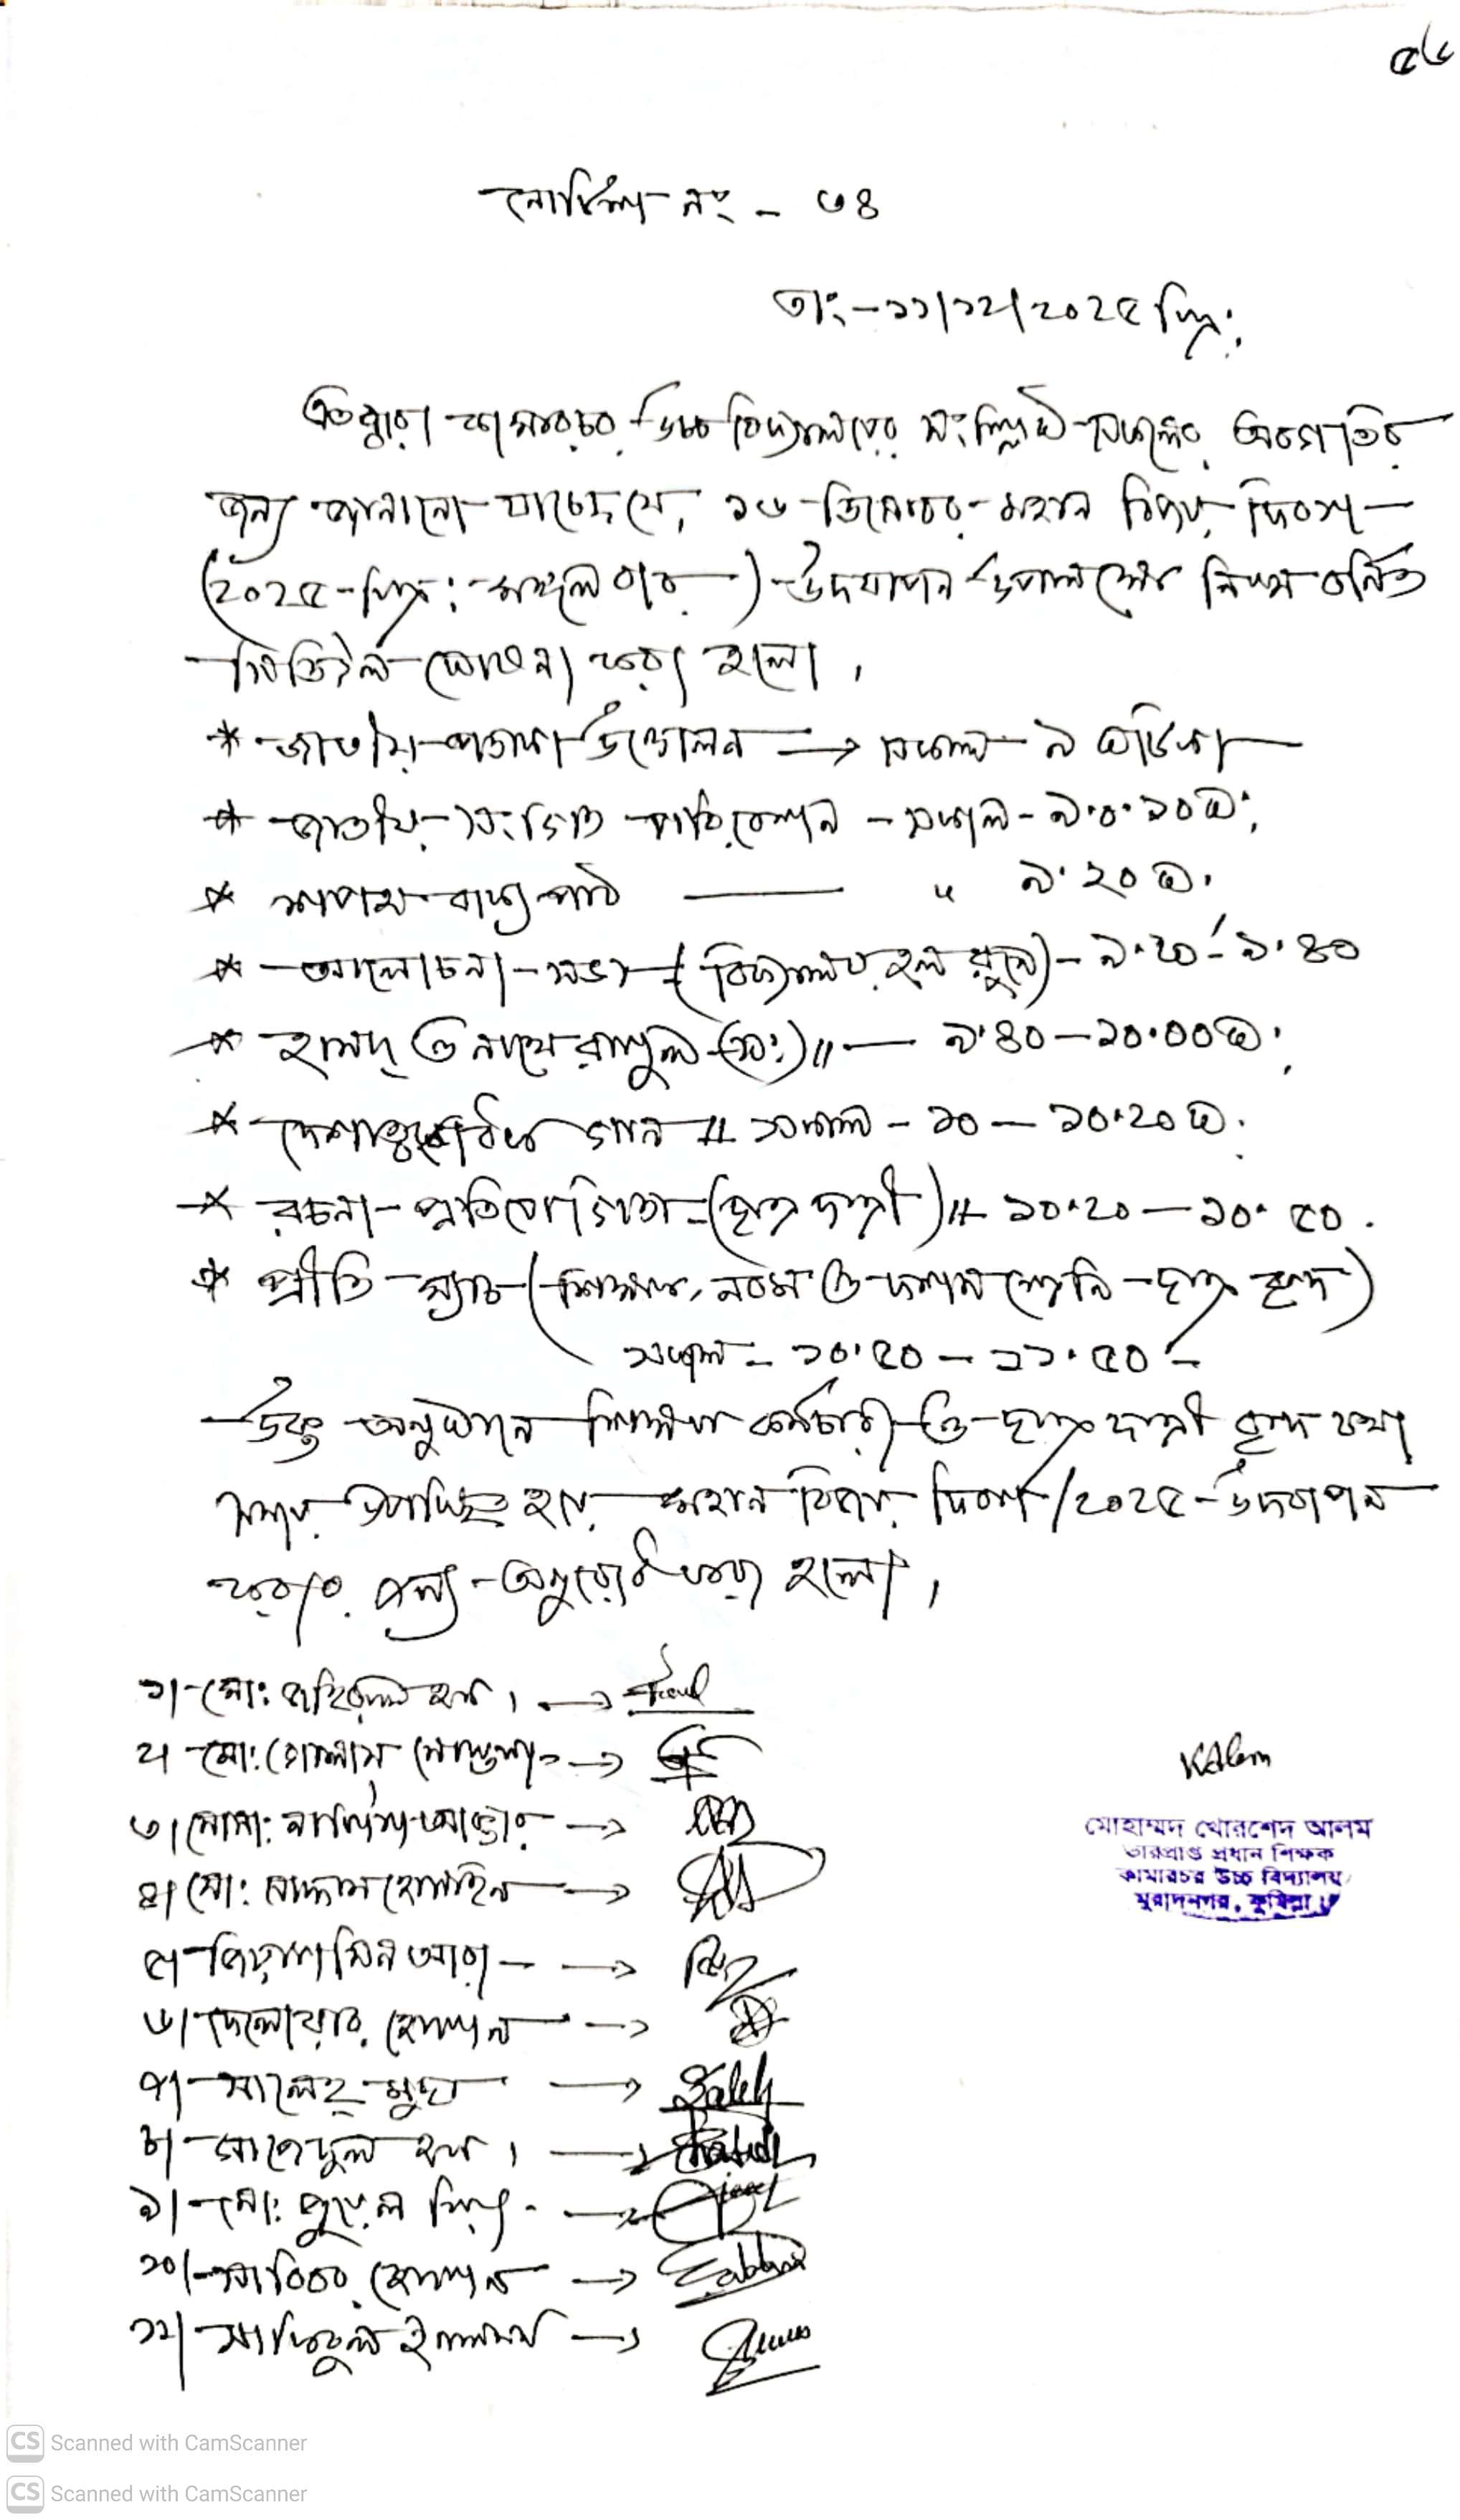 ৫৬
নোটিশ নং - ৩৪
তাং-১১/১২/২০২৫ খ্রি:
এতদ্বারা কামারচর উচ্চ বিদ্যালয়ের সংশ্লিষ্ট সকলের অবগতির
জন্য জানানো যাচ্ছে যে, ১৬ ডিসেম্বর মহান বিজয় দিবস
(২০২৫-খ্রি: মঙ্গলবার) উদযাপন উপলক্ষ্যে নিম্ন বর্নিত
ঘোষনা করা হলো।
* জাতীয় পতাকা উত্তোলন → সকাল ৯ ঘটিকা
* জাতীয় সংগিত পরিবেশন - সকাল-৯.১০ঘ:
* শপথ বাক্য পাঠ — " ৯.২০ ঘ.
* আলোচনা সভা (বিদ্যালয় হল রুমে) - ৯.২০ - ৯.৪০
* হামদ্ ও নাতে রাসুল (সা:) " — ৯.৪০ - ১০.০০ঘ:
* দেশাত্ববোধক গান " সকাল - ১০ - ১০.২০ঘ.
* রচনা প্রতিযোগিতা (ছাত্র ছাত্রী) " ১০.২০ - ১০.৫০.
* প্রীতি ম্যাচ (শিক্ষক, নবম ও দশম শ্রেনি ছাত্র বৃন্দ)
সকাল - ১০.৫০ - ১১.৫০ -
উক্ত অনুষ্ঠানে শিক্ষক কর্মচারী ও ছাত্র ছাত্রী বৃন্দ যথা
সময় উপস্থিত হয়ে মহান বিজয় দিবস/২০২৫ উদযাপন
করার জন্য অনুরোধ করা হলো।
১। মো: জহিরুল হক। →
২। মো: গোলাম মোস্তফা →
৩। মোসা: নার্গিস আক্তার →
৪। মো: সাদ্দাম হোসাইন →
৫। আরা - →
৬। দেলোয়ার হোসেন →
৭। সালেহ মুছা → Saleh
৮। সাজেদুল হক। →
৯। মো: জুয়েল মিয়া - →
১০। সাব্বির হোসেন → Sabbir
১১। ইসলাম →
KAlam
মোহাম্মদ খোরশেদ আলম
ভারপ্রাপ্ত প্রধান শিক্ষক
কামারচর উচ্চ বিদ্যালয়
মুরাদনগর, কুমিল্লা।
CS Scanned with CamScanner
CS Scanned with CamScanner